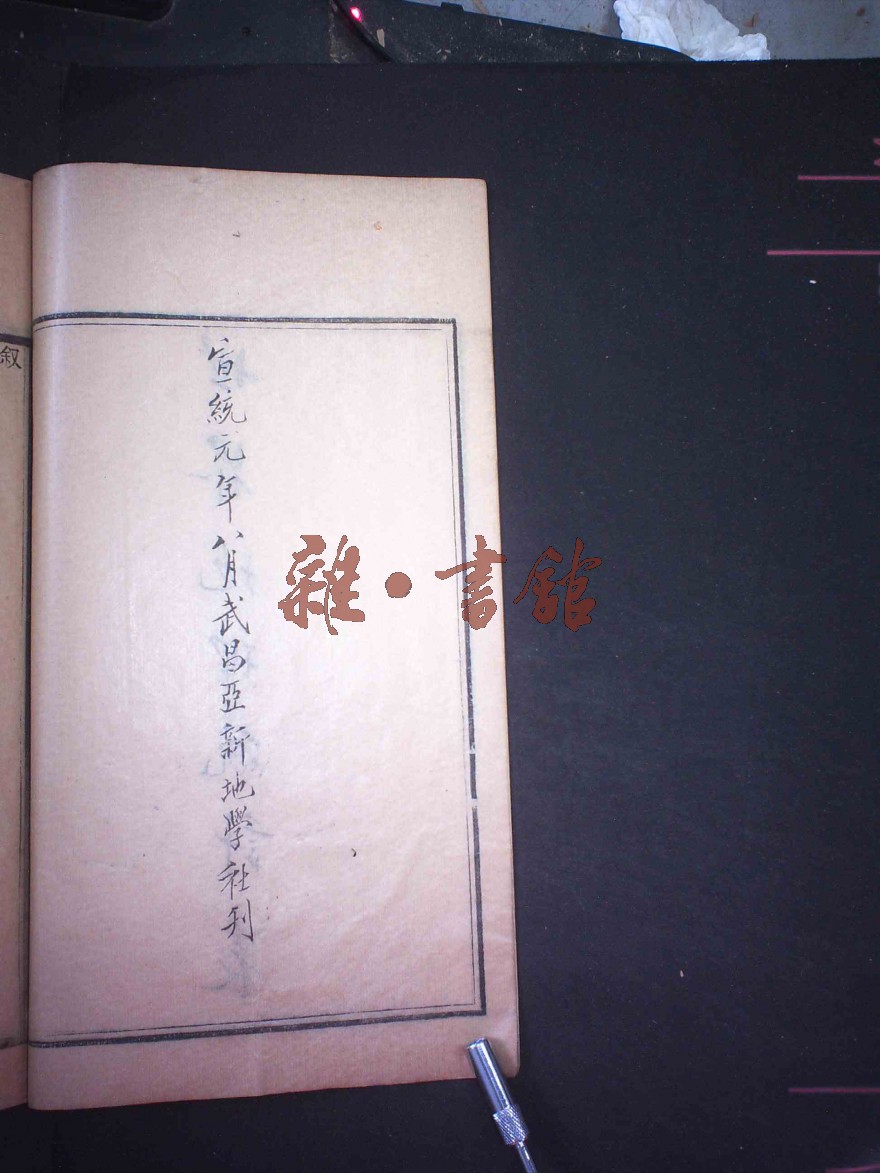 宣統元年八月武昌亞新地學社刊
叙
雜·書館